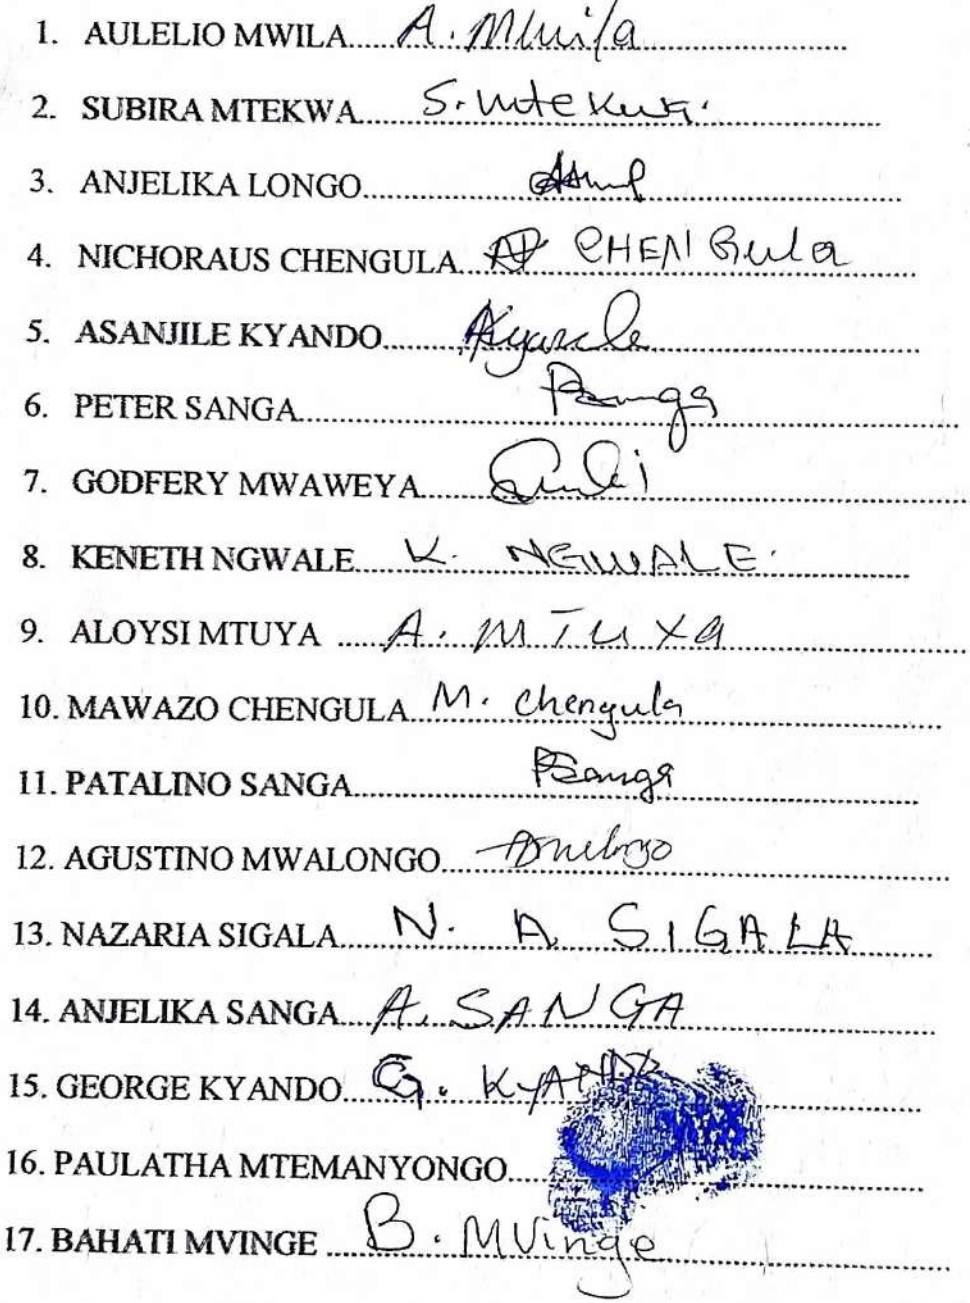 1. AULELIO MWILA..... A. Mwila
2. SUBIRA MTEKWA..... S. Mtekwa.
3. ANJELIKA LONGO.....
4. NICHORAUS CHENGULA... CHENGula
5. ASANJILE KYANDO..... Kyando
6. PETER SANGA..... PSanga
7. GODFERY MWAWEYA.....
8. KENETH NGWALE..... K. NGWALE.
9. ALOYSI MTUYA ..... A. MTUYA
10. MAWAZO CHENGULA M. Chengula
11. PATALINO SANGA..... PSanga
12. AGUSTINO MWALONGO.....
13. NAZARIA SIGALA..... N. A SIGALA
14. ANJELIKA SANGA... A. SANGA
15. GEORGE KYANDO... G. KYANDO
16. PAULATHA MTEMANYONGO.....
17. BAHATI MVINGE ..... B. MVinge